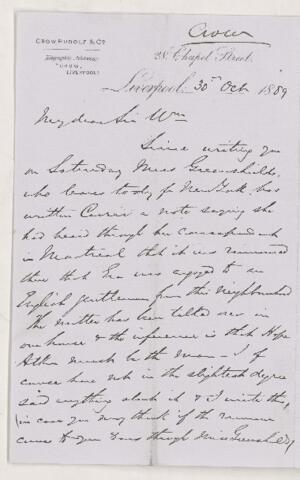 Crow
CROW, RUDOLF & Co.
Telegraphic Address,
"CROW,
LIVERPOOL"
28, Chapel Street,
Liverpool, 30th Oct 1889
My dear Sir Wm
Since writing you
on Saturday Miss Greenshields,
who leaves today for New York has
written Carrie a note saying she
had heard through her correspondent
in Montreal that it was rumoured
there that Eva was engaged to an
English gentleman from this neighbourhood
The matter has been talked over in
our house & the inference is that Hope
must be the man — I of
course have not in the slightest degree
said anything about it & I write this,
in case you may think if the rumour
came to your ears through Miss Greenshields